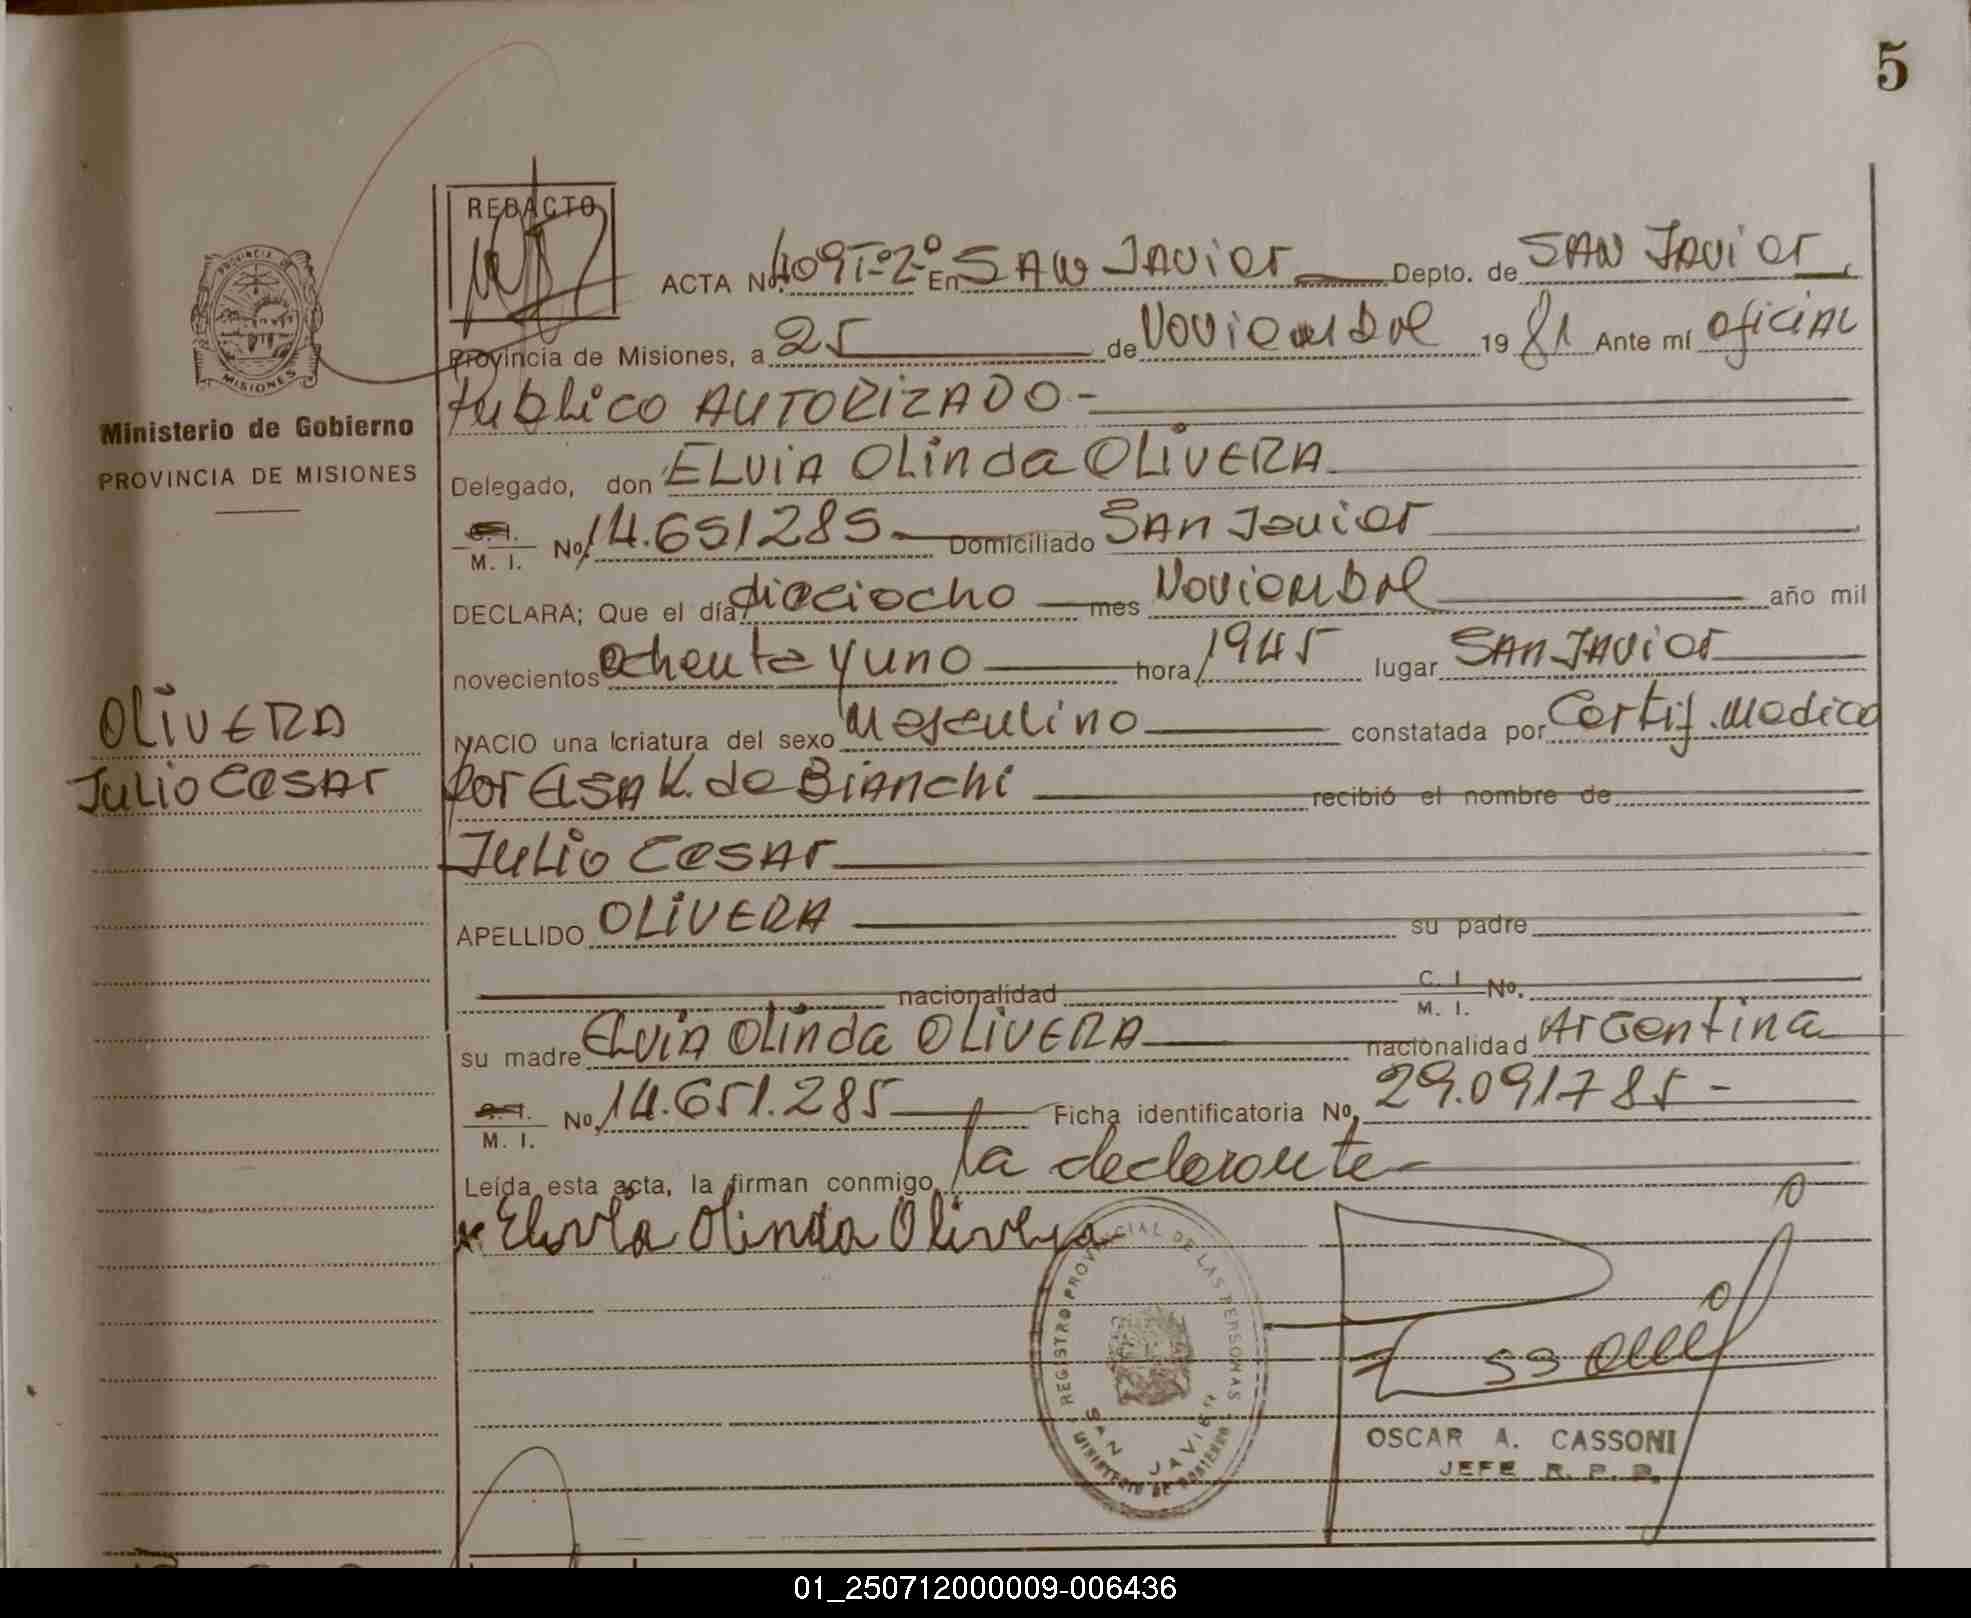 5
REDACTO
ACTA No. 409 Tº 2º En SAN JAVier Depto. de SAN JAVier
Provincia de Misiones, a 25 de Noviembre 1981 Ante mí oficiAL
Publico AUTORIZADO.-
PROVINCIA DE MISIONES
Ministerio de Gobierno
PROVINCIA DE MISIONES
Delegado, don ELVIA Olinda OLIVERA
M. I. No. 14.651285 Domiciliado SAN Javier
DECLARA; Que el día dieciocho mes Noviembre año mil
novecientos ochenta y uno hora 1945 lugar SAN JAVier
NACIO una criatura del sexo Masculino constatada por Certif. Medico
Por ELSA K. de BiANchi recibió el nombre de
JULio CesAr
OLIVERA
JULio CesAr
APELLIDO OLIVERA su padre
nacionalidad C. I. M. I. No.
su madre ELVIA Olinda OLIVERA nacionalidad Argentina
M. I. No. 14.651.285 Ficha identificatoria No. 29.091785-
Leída esta acta, la firman conmigo, la declarante
Elvia Olinda Olivera
REGISTRO PROVINCIAL DE LAS PERSONAS
SAN JAVIER
MINISTERIO DE GOBIERNO
OSCAR A. CASSONI
JEFE R. P. P.
01_250712000009-006436